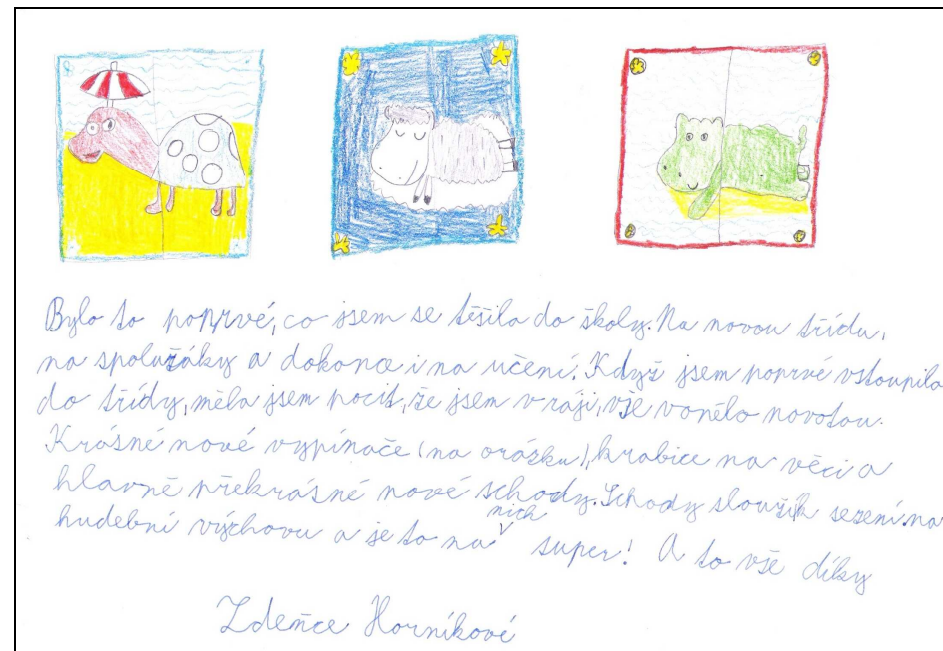 Bylo to poprvé, co jsem se těšila do školy. Na novou třídu,
na spolužáky a dokonce i na učení. Když jsem poprvé vstoupila
do třídy, měla jsem pocit, že jsem v ráji, vše vonělo novotou.
Krásné nové vypínače (na orásku), krabice na věci a
hlavně překrásné nové schody. Schody slouží k sezení na
hudební výchovu a je to na nich super! A to vše díky
Zdeňce Horníkové